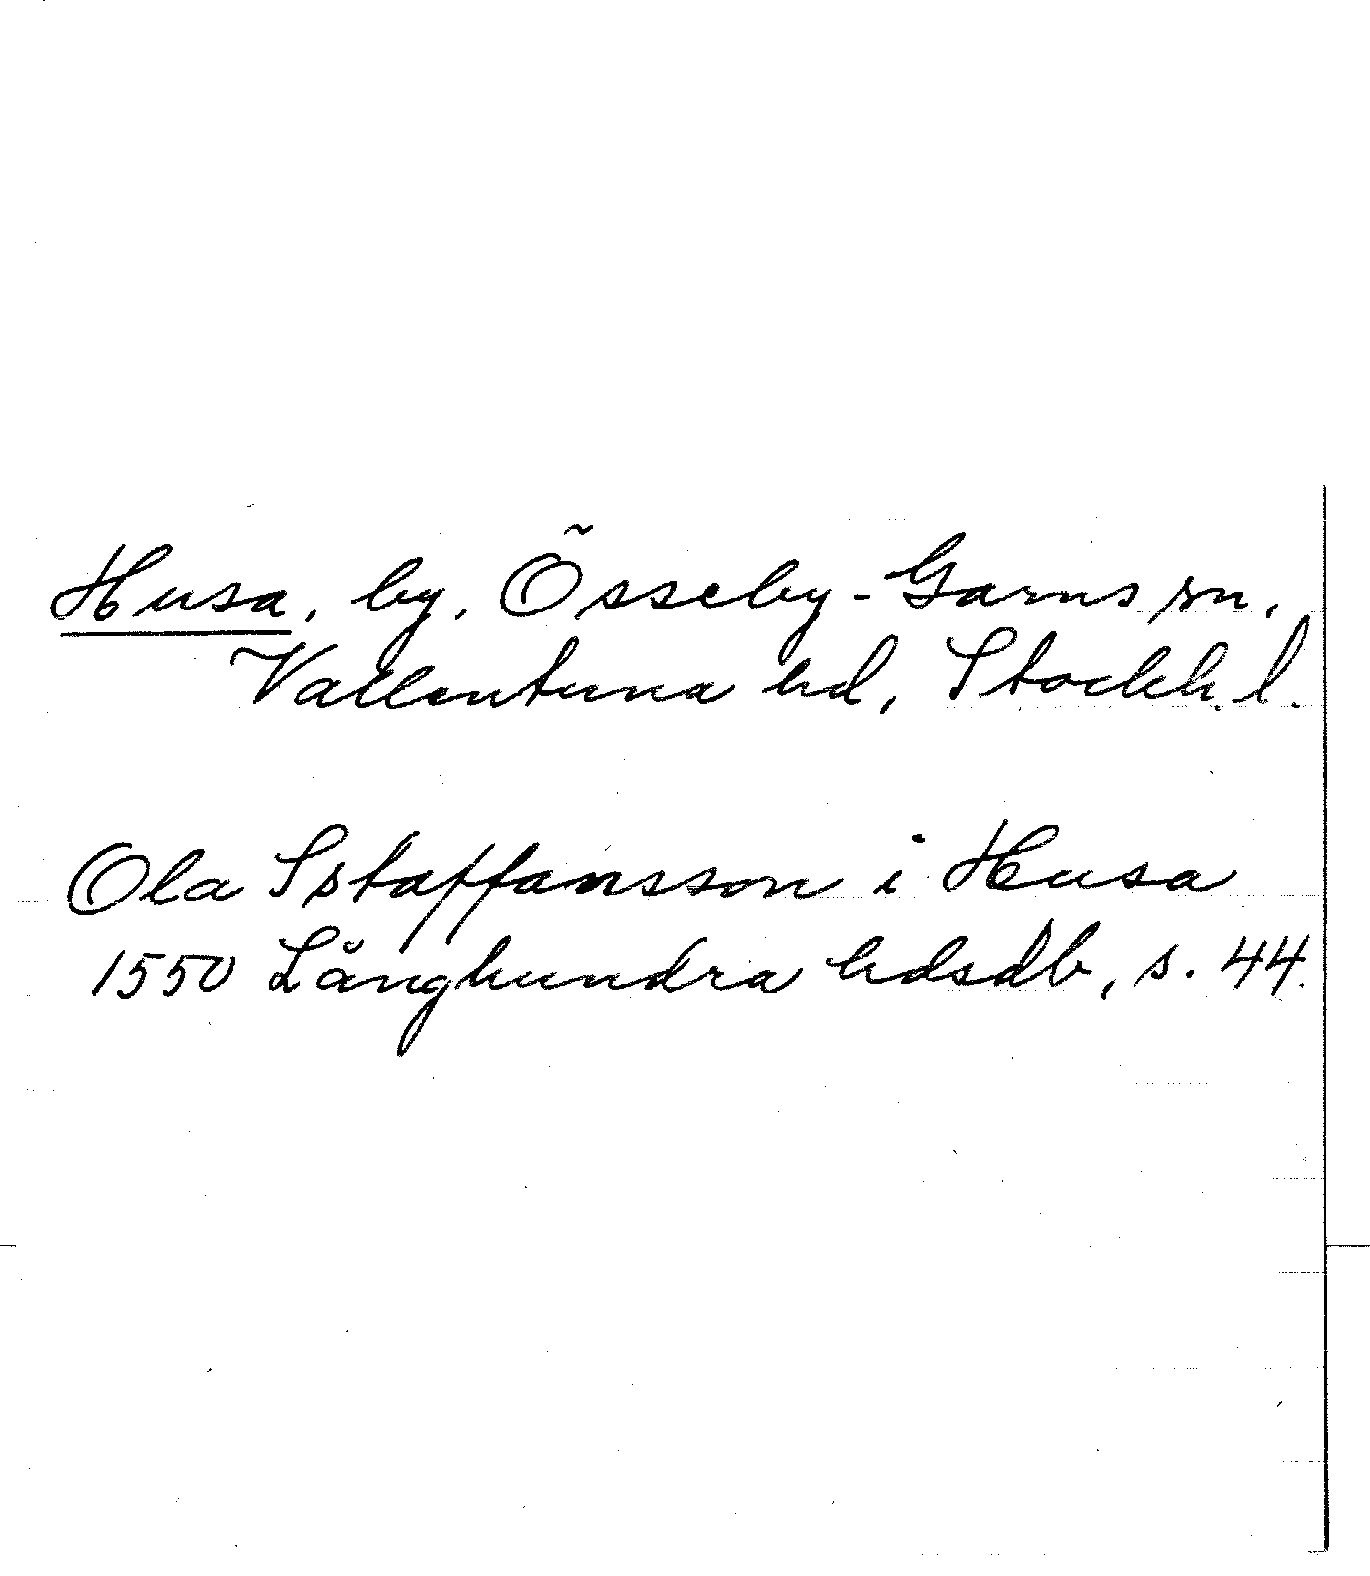 Husa, by, Össeby-Garns sn,
Vallentuna hd, Stockh. l.
Ola Sstaffansson i Husa
1550 Långhundra hdsdb, s. 44.